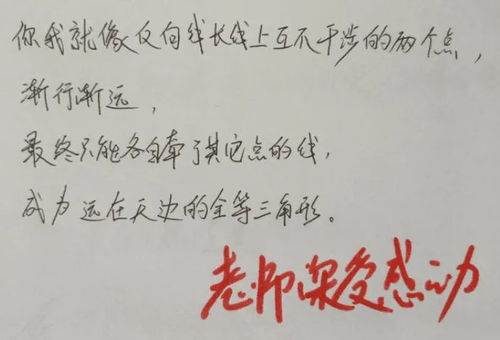 你我就像反向线长线上互不干涉的两个点，
渐行渐远，
最终只能各自牵了其它点的线，
成为远在天边的全等三角形。
老师深受感动